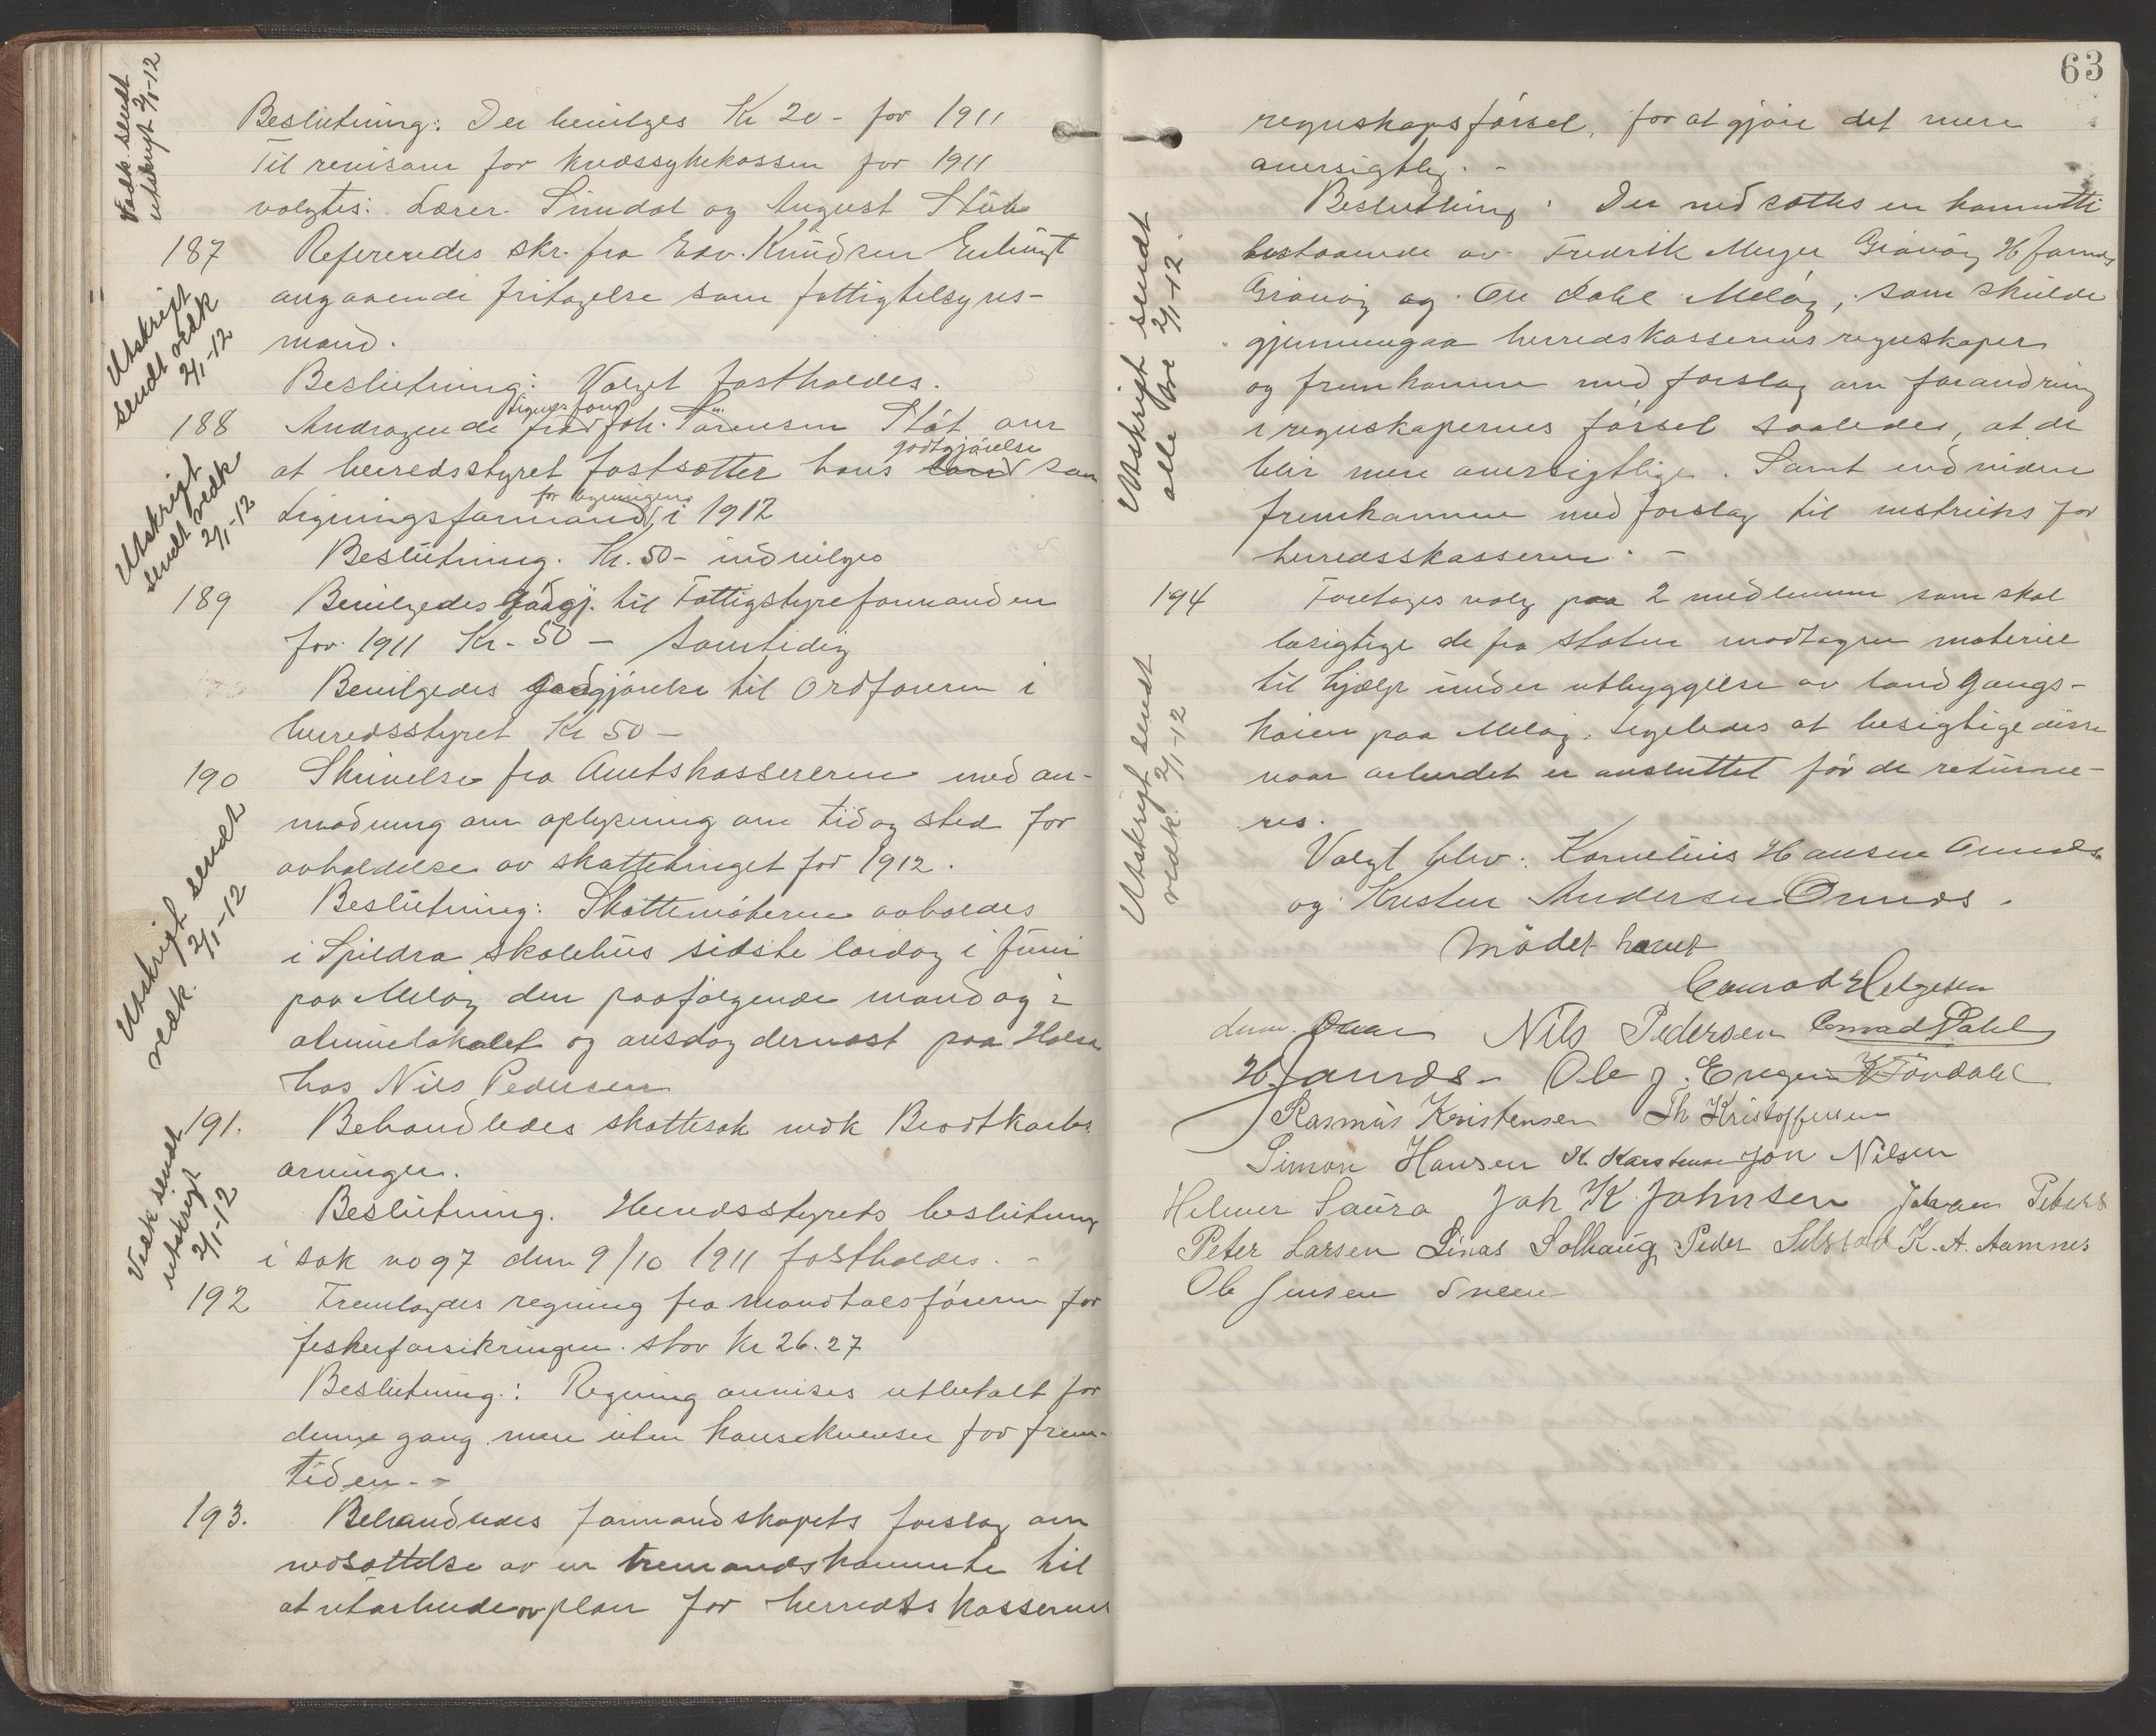 Vedk. sendt
utskrift 2/1-12
Beslutning: Der bevilges Kr 20 - for 1911
Til revisorer for kredssykekassen for 1911
valgtes: Lærer Sundal og August Støt
187 Refereredes skr. fra Edv. Knudsen Enhingt
angaaende fritagelse som fattigtilsyns-
mand.
Utskrift
sendt vedk
2/1-12
Beslutning: Valget fastholdes.
188 Andragende fra Lignesform Joh. Sörensen Støt om
at herredsstyret fastsætter hans godtgjörelse som
Ligningsformand for ligningen i 1912
Utskrift
sendt vedk
2/1-12
Beslutning. Kr. 50 - indvilges
189 Bevilgedes godgj. til Fattigstyreformanden
for 1911 Kr. 50 - Samtidig
Bevilgedes godgjörelse til Ordføreren i
herredsstyret Kr 50 -
190 Skrivelse fra Amtskassereren med an-
modning om oplysning om tid og sted for
avholdelse av skattetinget for 1912.
Utskrift sendt
vedk. 2/1-12
Beslutning: Skattemøterne avholdes
i Spildra skolehus sidste lørdag i Juni
paa Meløy den paafølgende mandag i
almuelokalet og onsdag dernæst paa Halsa
hos Nils Pedersen
191. Behandledes skattesak vedk Brodtkorbs
arvinger.
Vedk sendt
utskrift
2/1-12
Beslutning. Herredsstyrets beslutning
i sak no 97 den 9/10 1911 fastholdes. -
192 Fremlagdes regning fra mandtalsføreren for
fiskerforsikringen. stor Kr 26.27
Beslutning: Regning anvises utbetalt for
denne gang men uten konsekvenser for frem-
tiden. -
193. Behandledes formandskapets forslag om
nedsættelse av en tremandskomite til
at utarbeide plan for herredskasserens
63
regnskapsførsel, for at gjøre det mere
oversigtlig. -
Utskrift sendt
alle tre 2/1-12.
Beslutning: Der nedsættes en komitte
bestaaende av Fredrik Meyer Grönöy H Jarnds
Grönöy og Ole Dahl Meløy, som skulde
gjennemgaa herredskasserens regnskaper
og fremkomme med forslag om forandring
i regnskapernes førsel saaledes, at de
blir mere oversigtlige. Samt endvidere
fremkomme med forslag til instruks for
herredsskasseren. -
194 Foretages valg paa 2 medlemmer som skal
besigtige de fra staten modtagne materiel
til hjælp under utbyggelse av landgangs-
kaien paa Meløy. Ligeledes at besigtige disse
naar arbeidet er avsluttet før de returne-
res.
Utskrift sendt
vedk. 2/1-12
Valgt blev: Kornelius Hansen Ornes
og Kristen Andersen Ornes.
Mødet hævet
Conrad Helgesen
Nils Pedersen Conrad Dahl
H Jarnds - Ole J. Engen K Fondahl
Rasmus Kristensen Th Kristoffersen
Simon Hansen K Karstensen Jon Nilsen
Helmer Saura Joh K. Johnsen Johan Peters
Peter Larsen Linas Solhaug Peder Selstad K. A. Aamnes
Ole Jensen Sneen